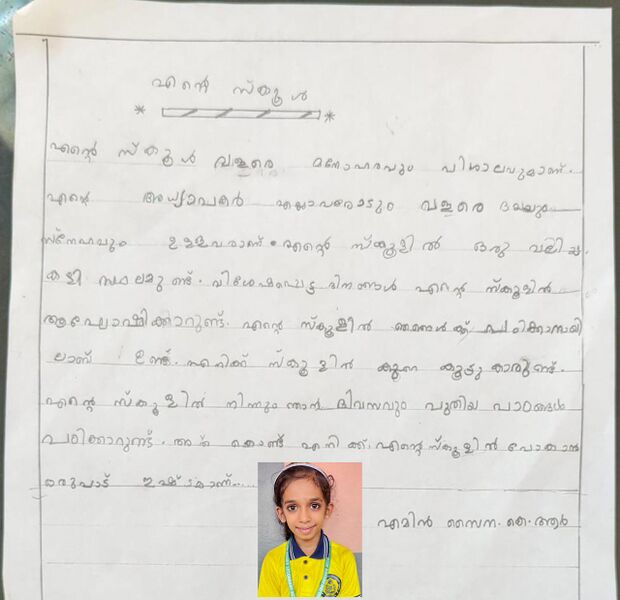 എന്റെ സ്കൂൾ
എന്റെ സ്കൂൾ വളരെ മനോഹരവും വിശാലവുമാണ്.
എന്റെ അധ്യാപകർ എല്ലാവരോടും വളരെ ദയയും
സ്നേഹവും ഉള്ളവരാണ്. എന്റെ സ്കൂളിൽ ഒരു വലിച്ച
കളി സ്ഥലമുണ്ട്. വിശേഷപ്പെട്ട ദിനങ്ങൾ എന്റെ സ്കൂളിൽ
ആഘോഷിക്കാറുണ്ട്. എന്റെ സ്കൂളിൽ ഞങ്ങൾക്ക് പഠിക്കാനായി
ലാബ് ഉണ്ട്. എനിക്ക് സ്കൂളിൽ കുറേ കൂട്ടുകാരുണ്ട്.
എന്റെ സ്കൂളിൽ നിന്നും ഞാൻ ദിവസവും പുതിയ പാഠങ്ങൾ
പഠിക്കാറുണ്ട്. അത് കൊണ്ട് എനിക്ക് എന്റെ സ്കൂളിൽ പോകാൻ
ഒരുപാട് ഇഷ്ടമാണ്.....
എമിൻ സൈന. കെ. ആർ